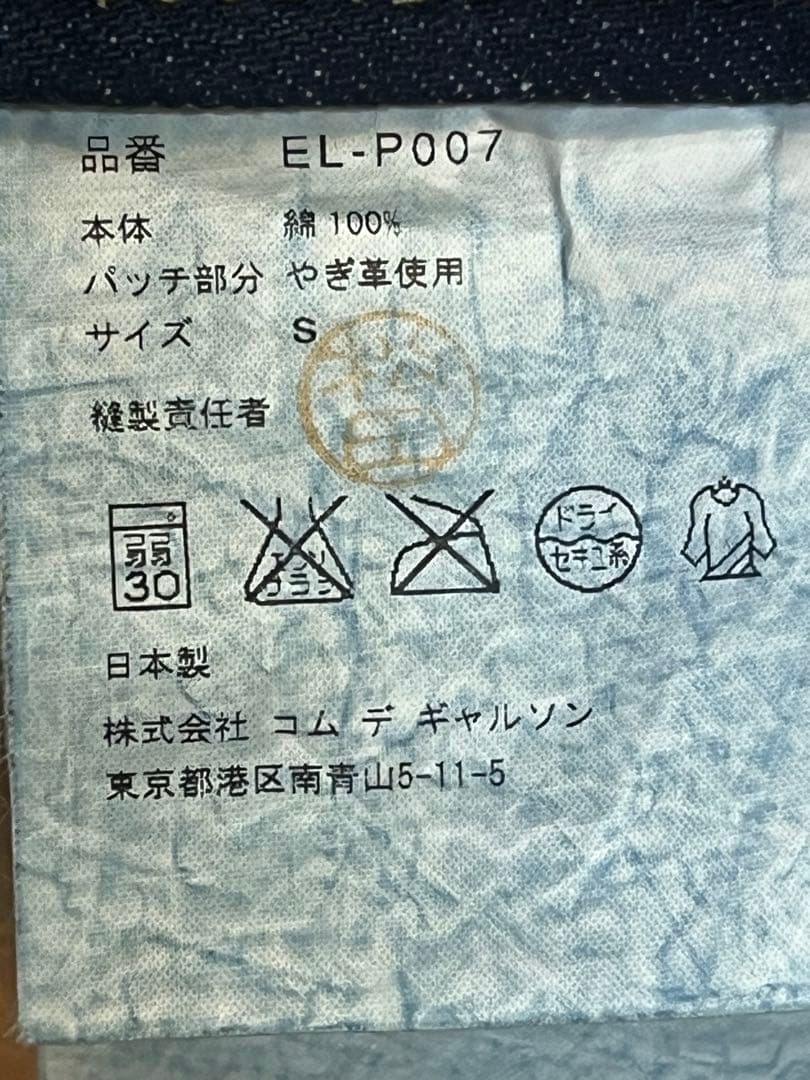 品番 EL-P007
本体 綿100%
パッチ部分 やぎ革使用
サイズ S
縫製責任者 松田
弱 30
エンソ サラシ
ドライ セキユ系
日本製
株式会社 コム デ ギャルソン
東京都港区南青山5-11-5